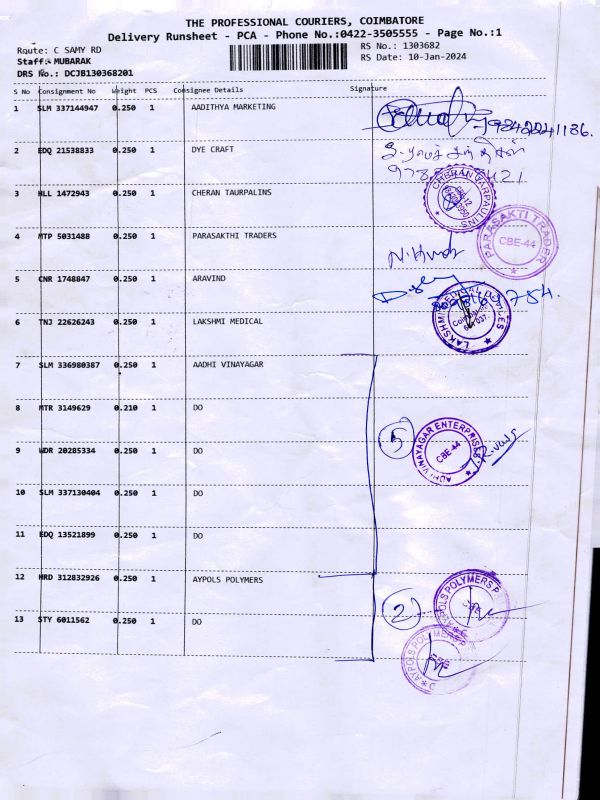 THE PROFESSIONAL COURIERS, COIMBATORE
Delivery Runsheet - PCA - Phone No.:0422-3505555 - Page No.:1
Route: C SAMY RD
RS No.: 1303682
Staff: MUBARAK
RS Date: 10-Jan-2024
DRS No.: DCJB130368201
S No Consignment No Weight PCS Consignee Details Signature
1 SLM 337144947 0.250 1 AADITHYA MARKETING
2 EDQ 21538833 0.250 1 DYE CRAFT
3 HLL 1472943 0.250 1 CHERAN TAURPALINS
CHERAN TARPAULINS
4 MTP 5031488 0.250 1 PARASAKTHI TRADERS
PARASAKTI TRADER
CBE-44
5 CNR 1748847 0.250 1 ARAVIND
6 TNJ 22626243 0.250 1 LAKSHMI MEDICAL
7 SLM 336980387 0.250 1 AADHI VINAYAGAR
8 MTR 3149629 0.210 1 DO
9 WDR 20285334 0.250 1 DO
5
ADHI VINAYAGAR ENTERPRISES
CBE-44
10 SLM 337130404 0.250 1 DO
11 EDQ 13521899 0.250 1 DO
12 HRD 312832926 0.250 1 AYPOLS POLYMERS
2
AYPOLS POLYMERS
13 STY 6011562 0.250 1 DO
AYPOLS POLYMERS